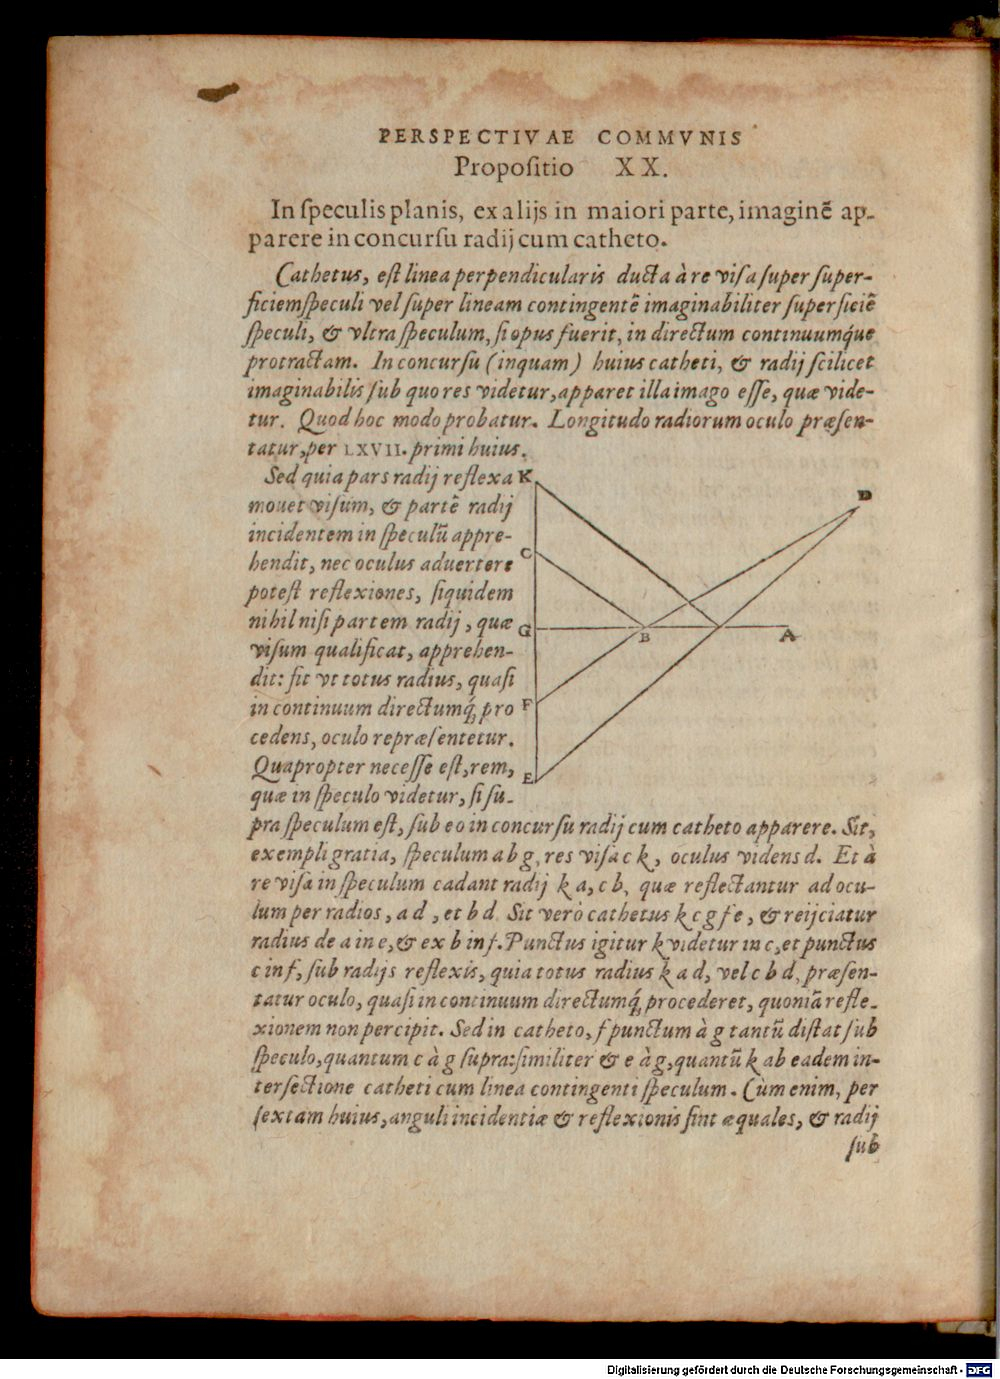 PERSPECTIVAE COMMVNIS
Propoſitio XX.
In ſpeculis planis, ex alijs in maiori parte, imaginẽ ap-
parere in concurſu radij cum catheto.
Cathetus, eſt linea perpendicularis ducta à re viſa ſuper ſuper-
ficiem ſpeculi vel ſuper lineam contingentẽ imaginabiliter ſuperficiẽ
ſpeculi, & vltra ſpeculum, ſi opus fuerit, in directum continuumq́ue
protractam. In concurſu (inquam) huius catheti, & radij ſcilicet
imaginabilis ſub quo res videtur, apparet illa imago eſſe, quæ vide-
tur. Quod hoc modo probatur. Longitudo radiorum oculo præſen-
tatur, per LXVII. primi huius.
Sed quia pars radij reflexa
mouet viſum, & partẽ radij
incidentem in ſpeculũ appre-
hendit, nec oculus aduertere
poteſt reflexiones, ſiquidem
nihil niſi partem radij, quæ
viſum qualificat, apprehen-
dit: fit vt totus radius, quaſi
in continuum directumq́; pro
cedens, oculo repræſentetur.
Quapropter neceſſe eſt, rem,
quæ in ſpeculo videtur, ſi ſu-
K
C
G
F
E
B
A
D
pra ſpeculum eſt, ſub eo in concurſu radij cum catheto apparere. Sit,
exempli gratia, ſpeculum a b g, res viſa c k, oculus videns d. Et à
re viſa in ſpeculum cadant radij k a, c b, quæ reflectantur ad ocu-
lum per radios, a d, et b d. Sit verò cathetus k c g f e, & reijciatur
radius de a in e, & ex b in f. Punctus igitur k videtur in c, et punctus
c in f, ſub radijs reflexis, quia totus radius k a d, vel c b d, præſen-
tatur oculo, quaſi in continuum directumq́; procederet, quoniã refle-
xionem non percipit. Sed in catheto, f punctum à g tantũ diſtat ſub
ſpeculo, quantum c à g ſupra: ſimiliter & e à g, quantũ k ab eadem in-
terſectione catheti cum linea contingenti ſpeculum. Cùm enim, per
ſextam huius, anguli incidentiæ & reflexionis ſint æquales, & radij
ſub
Digitalisierung gefördert durch die Deutsche Forschungsgemeinschaft - DFG